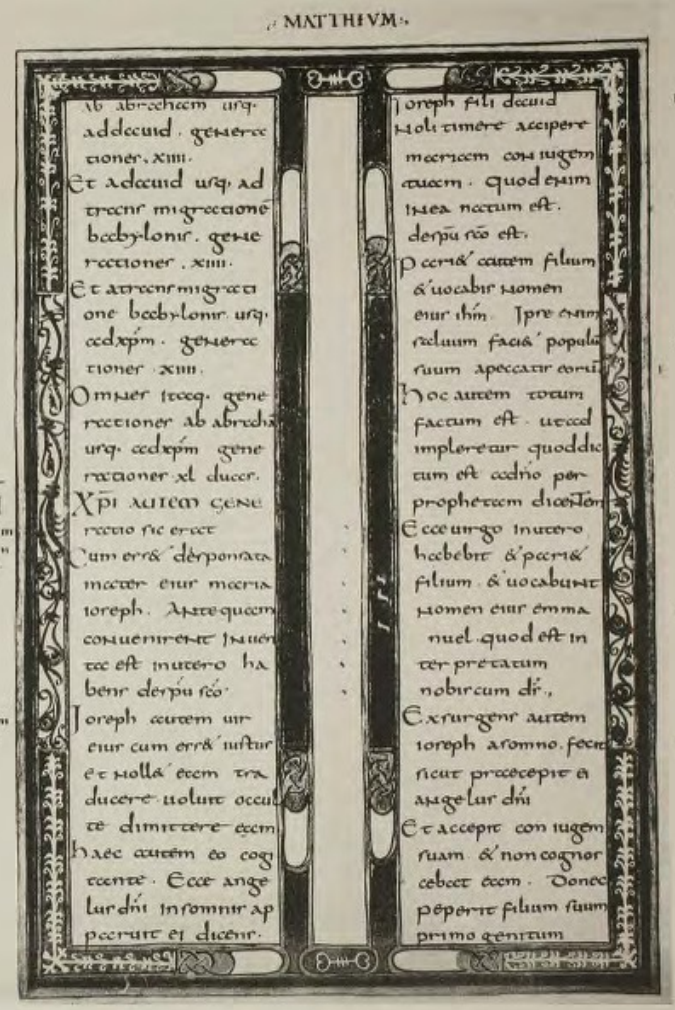 MATTHEVM
ab abraham usq.
addauid. genera
tiones. xiiii.
Et adauid usq. ad
trans migrationē
babylonis. gene
rationes. xiiii.
Et atransmigrati
one babylonis. usq.
adxp̄m. genera
tiones. xiiii.
Omnes itaq. gene
rationes ab abrahā
usq. adxp̄m gene
rationes xl duas.
XPI AUTEM GENE
ratio sic erat
Cum ess& desponsata
mater eius maria
ioseph. Antequam
conuenirent Inuen
ta est inutero ha
bens despū sc̄o.
Ioseph autem uir
eius cum ess& iustus
et noll& eam tra
ducere. uoluit occul
te dimittere eam
haec autem eo cogi
tante. Ecce ange
lus dn̄i Insomnis ap
paruit ei dicens.
Ioseph fili dauid
Noli timere accipere
mariam coniugem
tuam. Quod enim
INea natum est.
despū sc̄o est.
Pari& autem filium
& uocabis nomen
eius ih̄m. Ipse enim
saluum faci& populū
suum apeccatis eorū
hoc autem totum
factum est. utad
impleretur quoddic
tum est adn̄o per
prophetam dicentem
Ecce uirgo Inutero
habebit & pari&
filium. & uocabunt
nomen eius emma
nuel. quod est in
terpretatum
nobiscum ds̄.,
Exsurgens autem
ioseph asomno. fecit
sicut praecepit ei
angelus dn̄i
Et accepit coniugem
suam. & non cognos
cebat eam. Donec
peperit filium suum
primo genitum